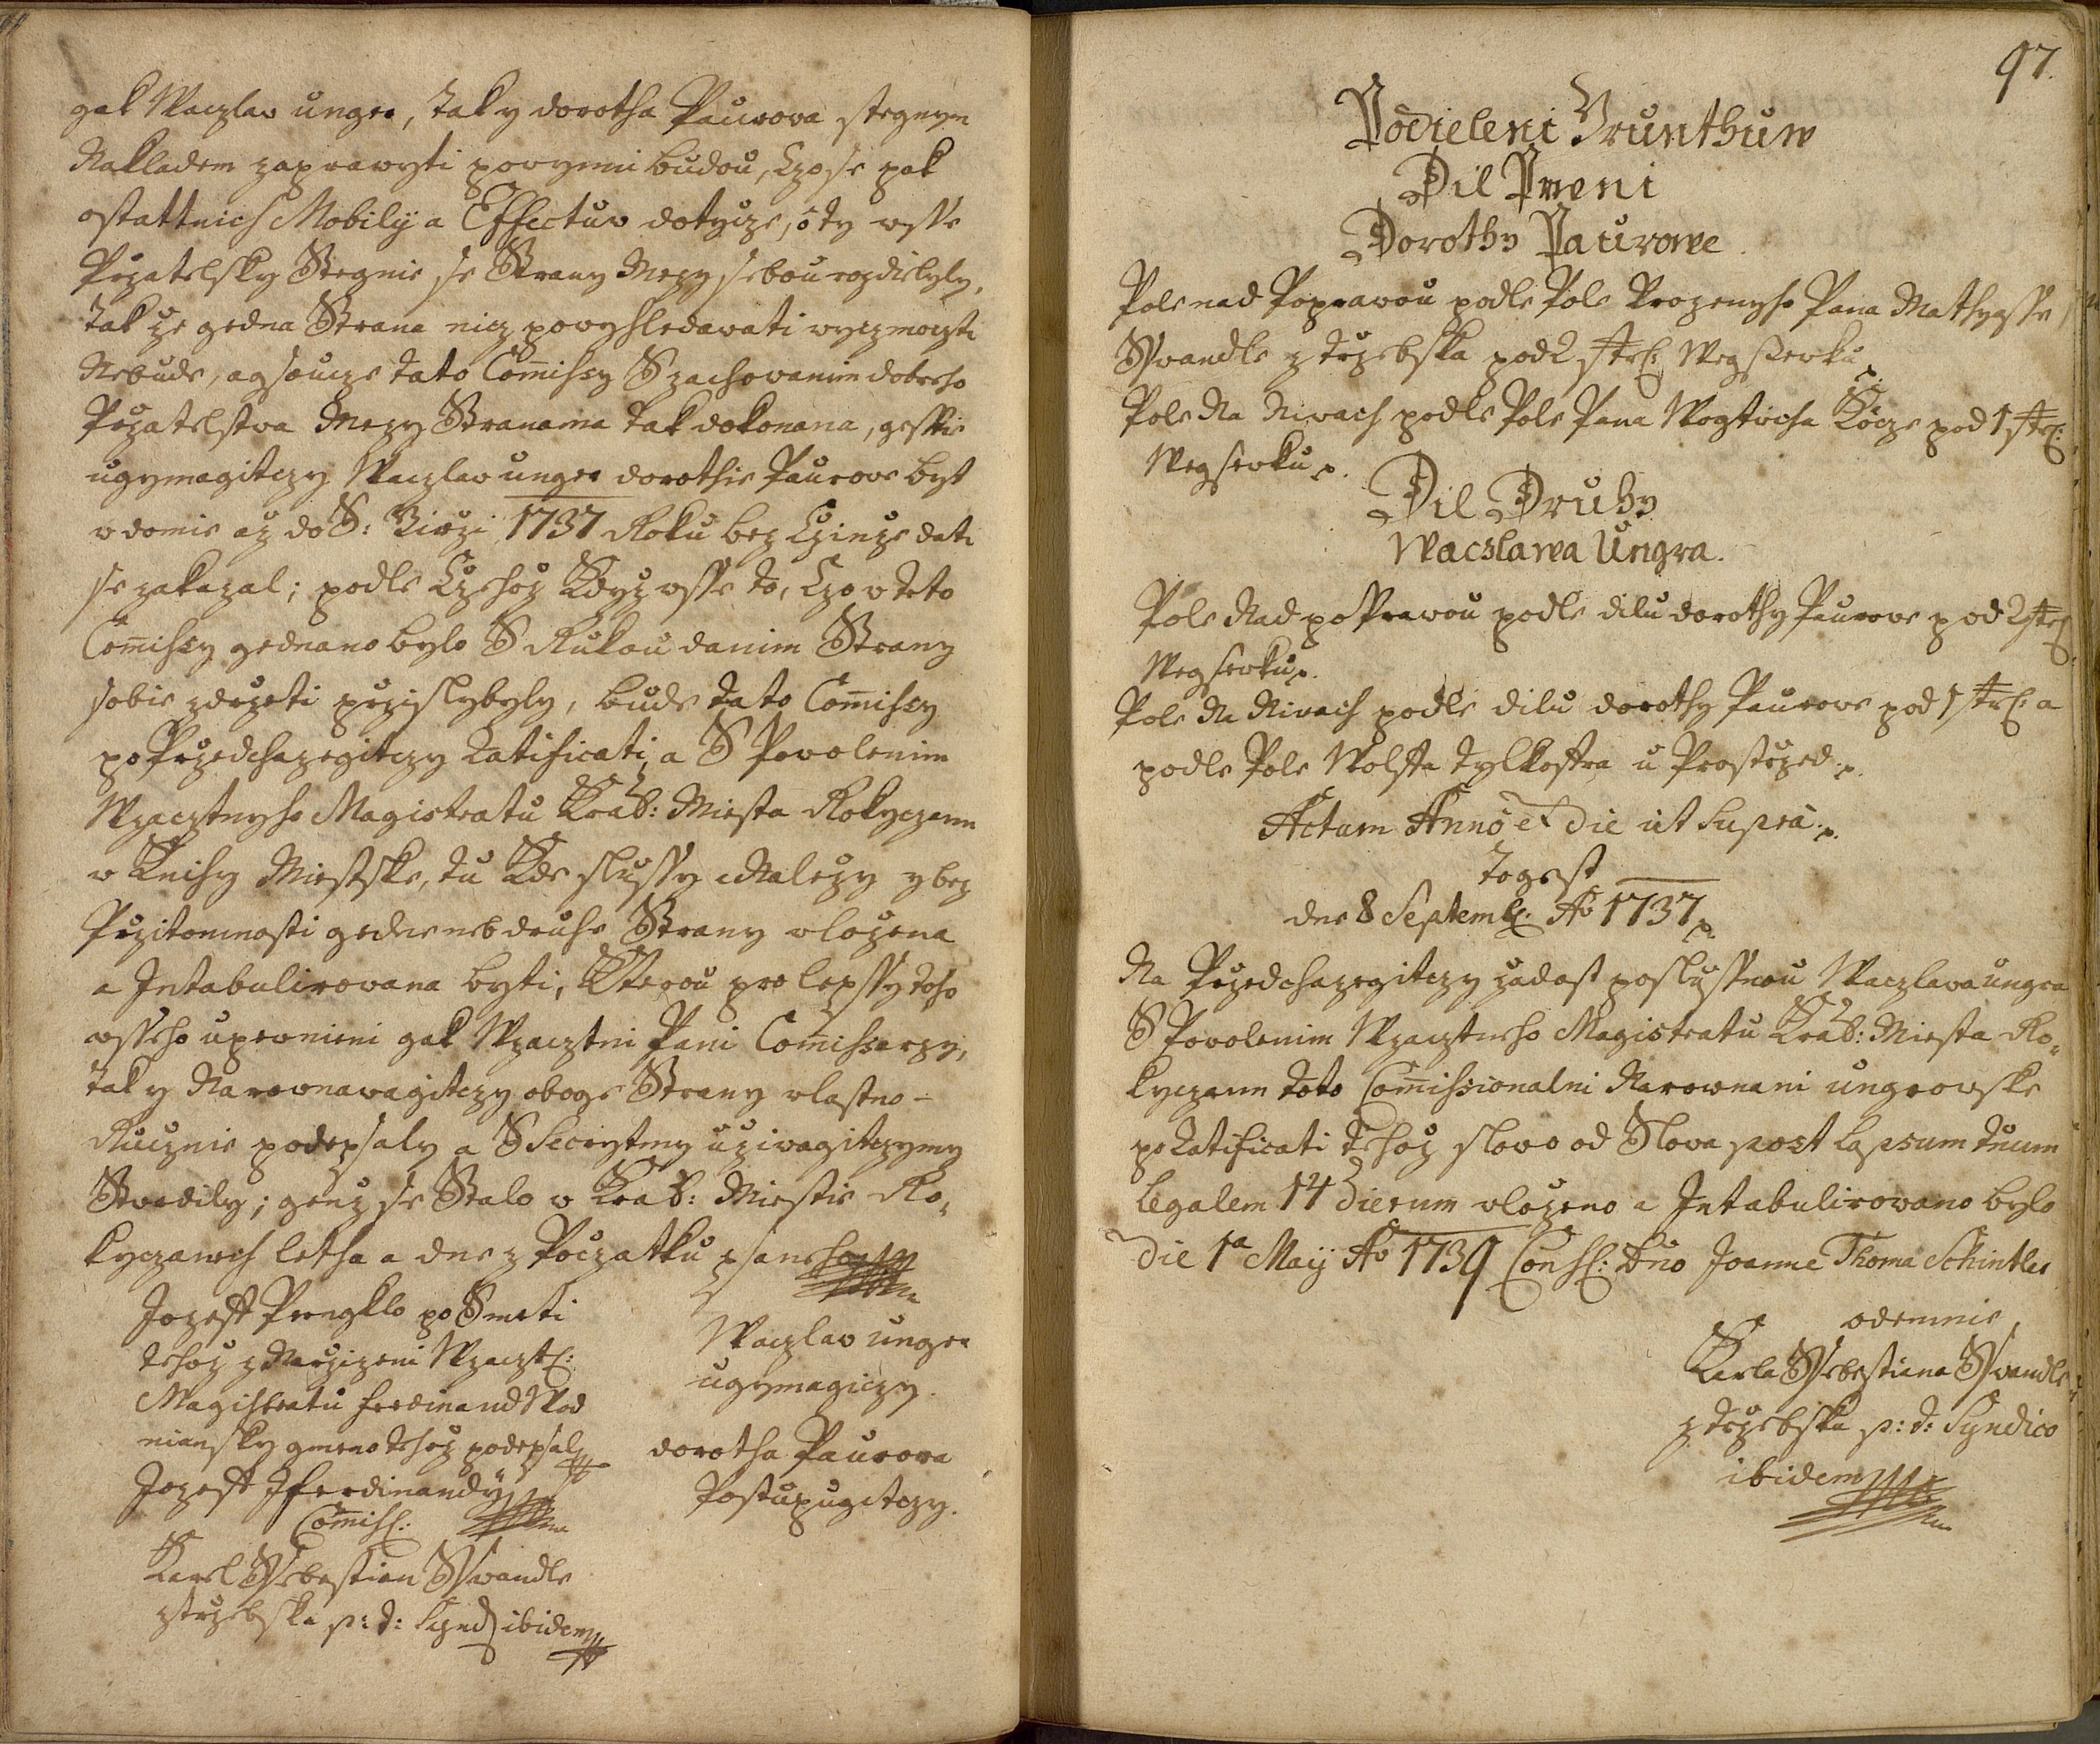 gak Waczlav unger, tak y dorotha Paurova stegnym
Nakladem zaprawyti povynni budou, Czo se pak
ostattnich Mobilÿ a Effectuv dotycze, o ty wsse
Przatelsky Stegnie se Strany Mezy sebou rozdielyly,
tak ze gedna Strana nicz povyhledavati wycz moczti
Nebude, agsoucze tato Com̄issy S zachovanim dobreho
Przatelstva Mezy Stranama tak dokonana, gesstie
ugymagitczy Waczlav unger dorothie Paurove byt
v domie az do S: Girzi 1737 Roku bez Czinze dati
se zakazal; podle Czehoz Kdyz wsse to, Czo v teto
Com̄issy gednano bylo S Rukou danim Strany
sobie zdrzeti przislybyly, bude tato Com̄issy
po Przedchazegitczy Ratificati, a S Povolenim
Wzacztnyho Magistratu Kral: Miesta Rokyczann
v Knihy Miestske, tu Kde slussy a Nalezy y bez
Przitomnosti gedne neb druhe Strany vlozena
a Intabulirovana byti, Kterou pro lepssy toho
wsseho upevnieni gak Wzacztni Pani Com̄issarzy,
tak y Narovnavagitczy oboge Strany vlastno-
Rucznie podepsaly a S Secrytmy uzivagitczymy
Stvrdily; genz se Stalo v Kral: Miestie Ro-
kyczanech letha a dne z Poczatku psaneho
Jozeff Prengklo po Smrti
tehoz z Narzizeni Wzaczt:
Magistratu ferdinand Wod
niansky gmeno tehoz podepsal
Jozeff Jferdinandÿ
Com̄iss:
Karel Ssebestian Sswandle
z trzebska p: t: Synd: ibidem
Waczlav unger
ugymagiczy.
dorotha Paurova
Postupugitczy.
97.
Podieleni Grunthuw
Dil Prvni
Dorothy Paurowe.
Pole nad Poprawou podle Pole Urozenyho Pana Mathyasse
Sswandle z trzebska pod 2 str: Wegsserku p.
Pole Na Nivach podle Pole Pana Wogticha Kocze pod 1 str:
Wegserku p.
Dil Druhy
Wacslawa Ungra.
Pole Nad poprawou podle dilu dorothy Paurove pod 2 str:
Wegserku p.
Pole Na Nivach podle dilu dorothy Paurove pod 1 str: a
podle Pole Wolffa tylkostra u Prostrzed p.
Actum Anno et Die ut Supra p.
togest
dne 8 Septemb: Ao 1737 p.
Na Przedchazegitczy zadost poslussnou Waczlava ungra
S Povolenim Wzacztneho Magistratu Kral: Miesta Ro-
kyczann toto Com̄issionalni Narownani ungrovske
po Ratificati tehoz slovo od Slova post lapsum tuum
legalem 14 Dierum vlozeno a Intabulirovano bylo
Die 1a Maÿ Ao 1739 Cons: Dno Joanne Thoma Schintler
odemnie
Karla Ssebestiana Sswandle
z trzebska p: t: Syndico
ibidem